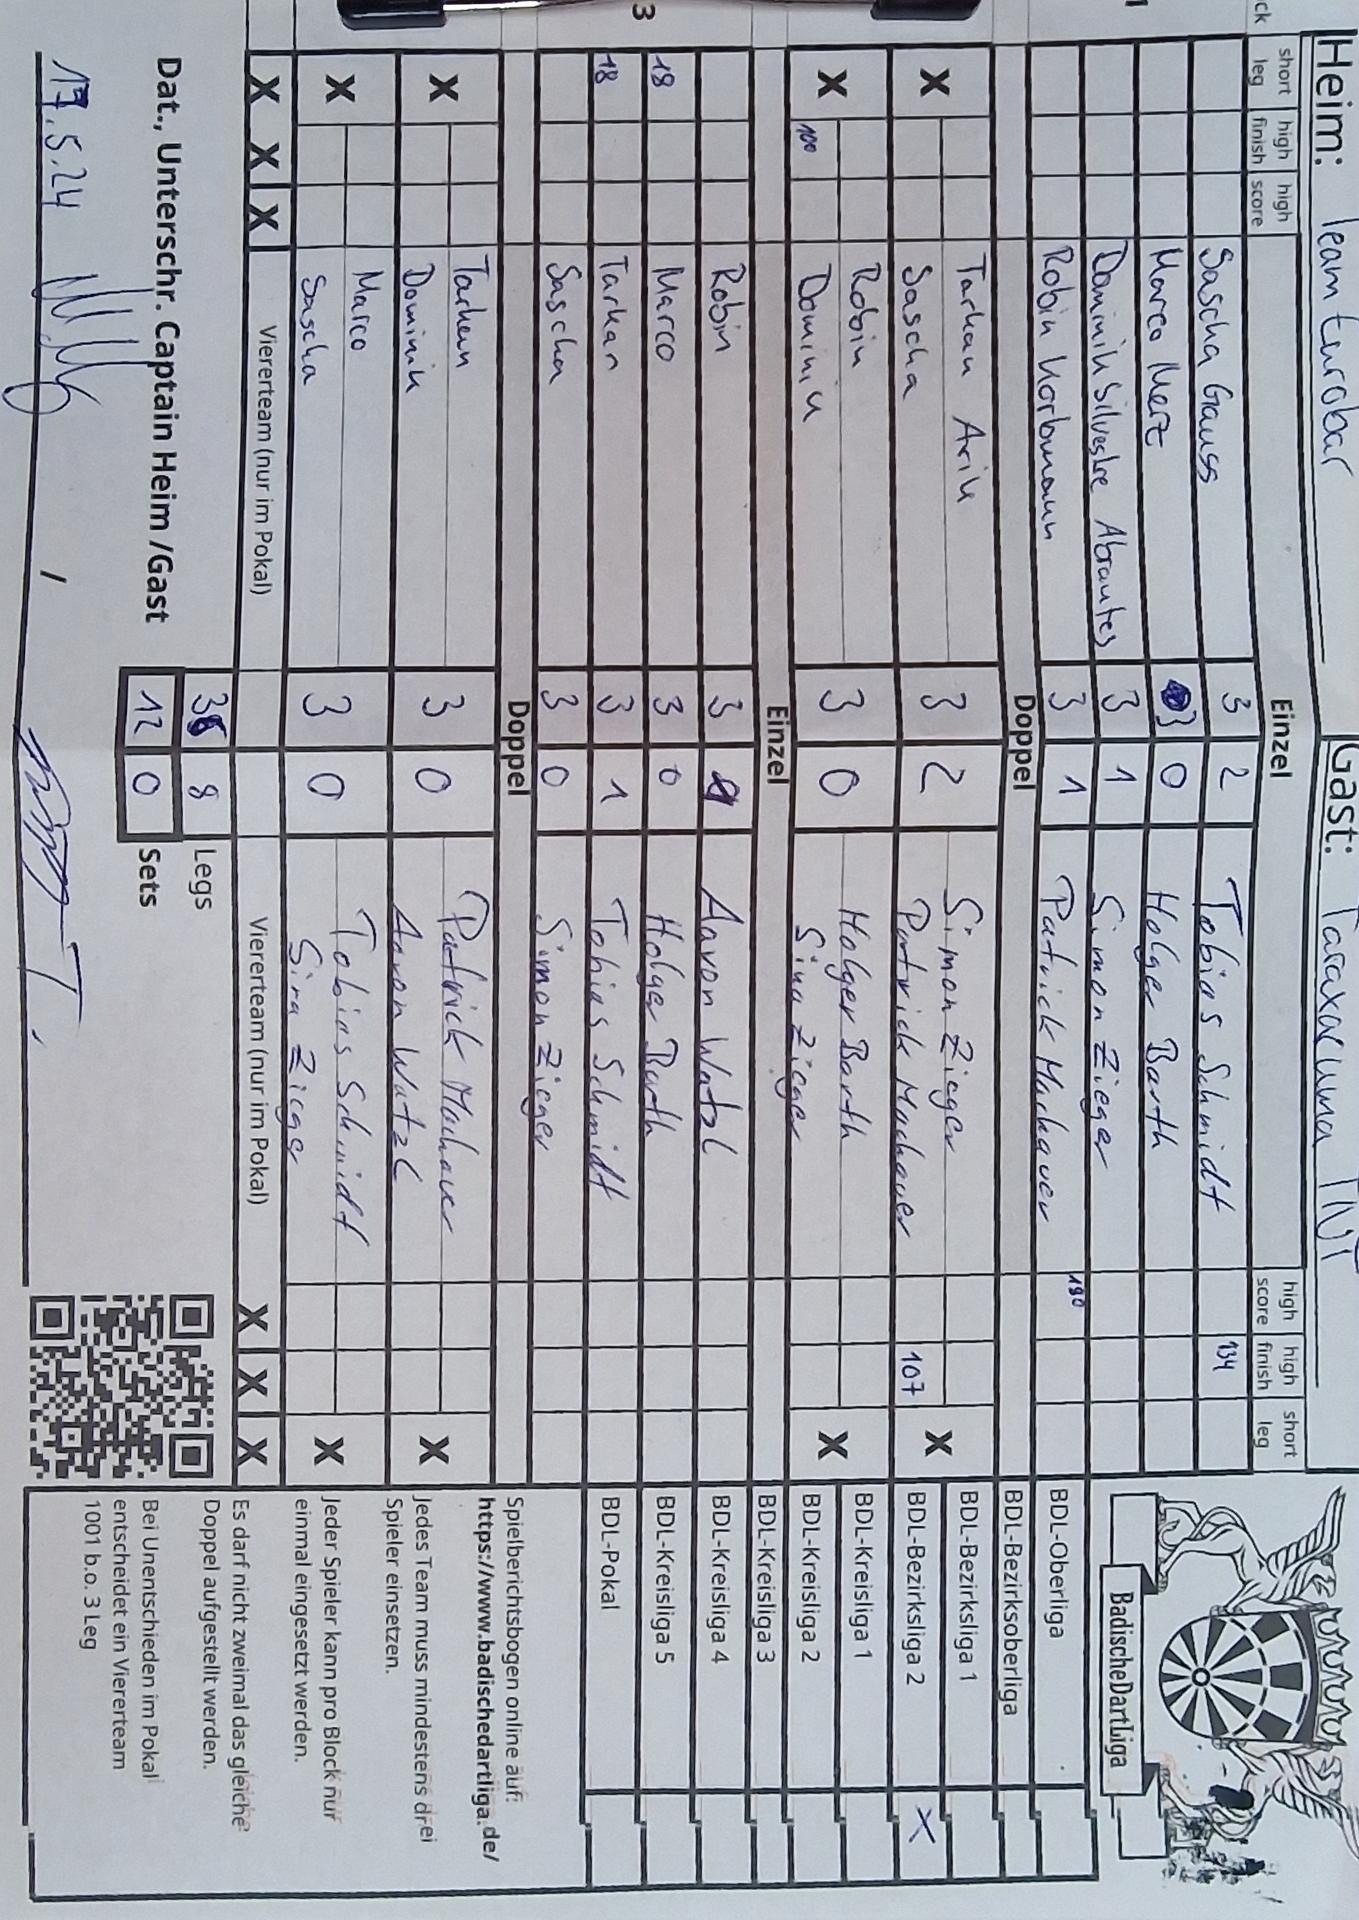 Heim: Team Eurobar
Gast: Taraxacuma TNT
ck
short leg
high finish
high score
Einzel
high score
high finish
short leg
1
Sascha Gauss 3 2 Tobias Schmidt 134
Marco Merz 3 0 Holger Barth
Dominik Silvestre Abrantes 3 1 Simon Zieger
Robin Korbmann 3 1 Patrick Machauer 180
Doppel
X Tarkan Arik 3 2 Simon Zieger X
Sascha Patrick Machauer 107
X Robin 3 0 Holger Barth X
100 Dominik Sina Zieger
3
Einzel
Robin 3 Aaron Watzl
18 Marco 3 0 Holger Barth
18 Tarkan 3 1 Tobias Schmidt
Sascha 3 0 Simon Zieger
Doppel
X Tarkan 3 0 Patrick Machauer X
Dominik Aaron Watzl
X Marco 3 0 Tobias Schmidt X
Sascha Sina Zieger
X X X Viererteam (nur im Pokal) Viererteam (nur im Pokal) X X X
36 8 Legs
12 0 Sets
Dat., Unterschr. Captain Heim /Gast
17.5.24 /
BadischeDartLiga
BDL-Oberliga
BDL-Bezirksoberliga
BDL-Bezirksliga 1
BDL-Bezirksliga 2 X
BDL-Kreisliga 1
BDL-Kreisliga 2
BDL-Kreisliga 3
BDL-Kreisliga 4
BDL-Kreisliga 5
BDL-Pokal
Spielberichtsbogen online auf:
https://www.badischedartliga.de/
Jedes Team muss mindestens drei
Spieler einsetzen.
Jeder Spieler kann pro Block nur
einmal eingesetzt werden.
Es darf nicht zweimal das gleiche
Doppel aufgestellt werden.
Bei Unentschieden im Pokal
entscheidet ein Viererteam
1001 b.o. 3 Leg